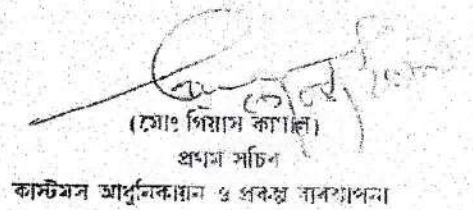 (মোঃ গিয়াস কামাল)
প্রথম সচিব
কাস্টমস আধুনিকায়ন ও প্রকল্প ব্যবস্থাপনা